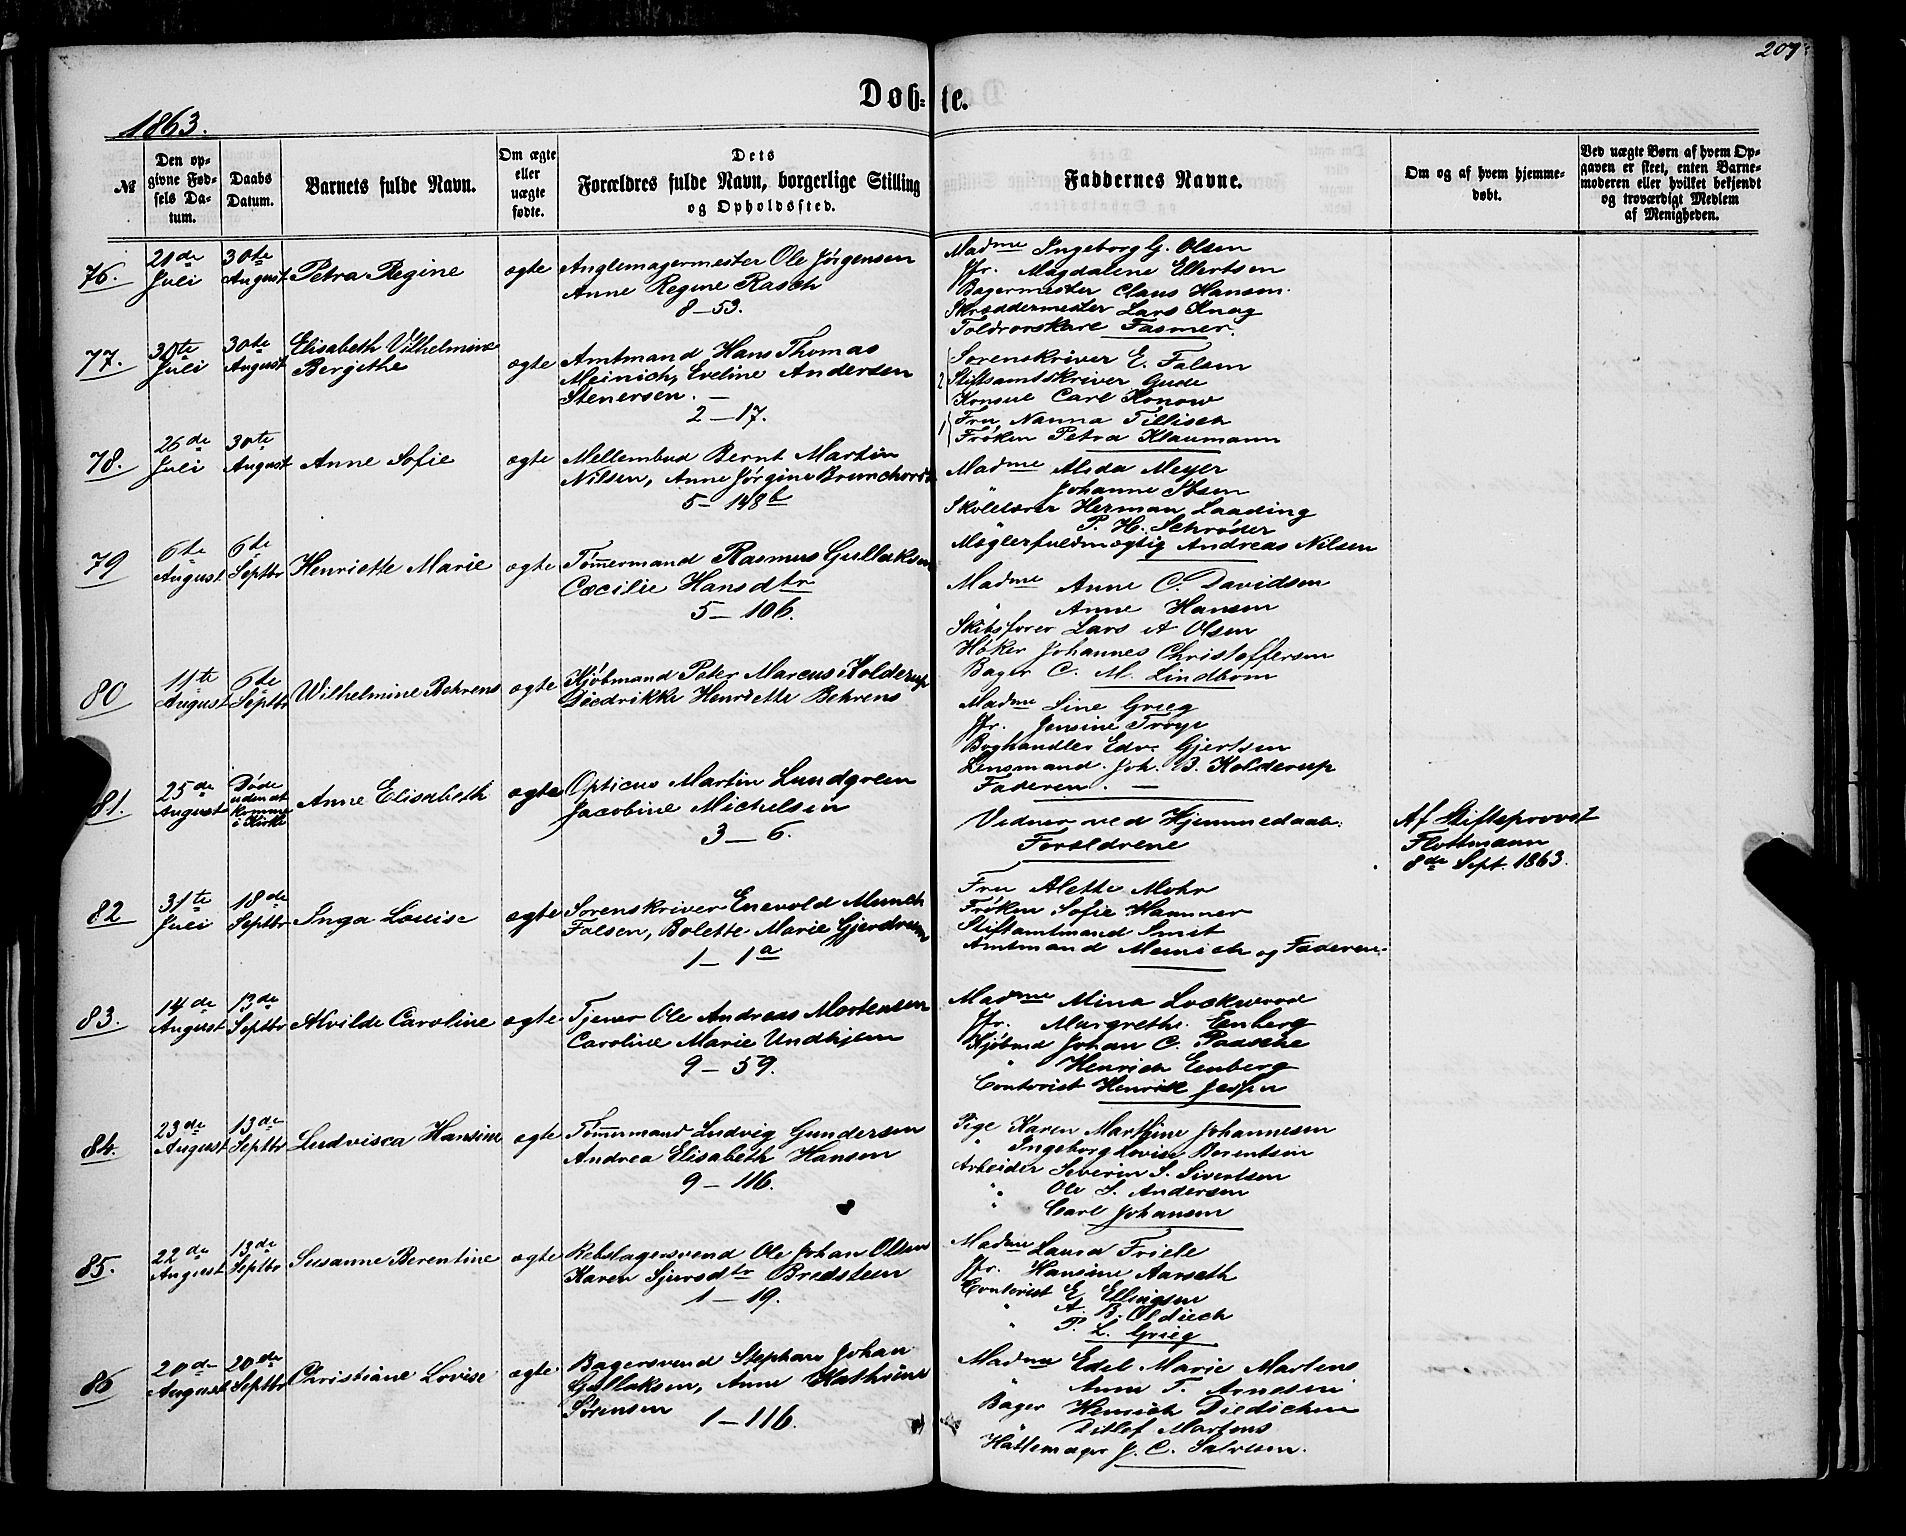 207
Døb-te.
1863.
№
Den opgivne Fødsels Datum.
Daabs Datum.
Barnets fulde Navn.
Om ægte eller uægte fødte.
Dets Forældres fulde Navn, borgerlige Stilling og Opholdssted.
Faddernes Navne.
Om og af hvem hjemmedøbt.
Ved uægte Børn af hvem Opgaven er skeet, enten Barnemoderen eller hvilket bekjendt og troværdigt Medlem af Menigheden.
76. 21de Juli 30te August Petra Regine ægte Anglemagermester Ole Jørgensen
Anne Regine Rasch
8-53.
Madme Ingeborg G. Olsen
Jfr. Magdalene Ellertsen
Bagermester Claus Hansen
Skræddermester Lars Knag
Toldrorskarl Fasmer.
77. 30te Juli 30te August Elisabeth Vilhelmine Bergithe ægte Amtmand Hans Thomas
Meinich, Eveline Andersen
Stenersen.
2-17.
2 Sorenskriver E. Falsen
Stiftsamtskriver Gude
Konsul Carl Konow
1 Fru Nanna Tillisch
Frøken Petra Klaumann
78. 26de Juli 30te August Anne Sofie ægte Mellembud Bernt Martin
Nilsen, Anne Jørgine Brunchorst
5-148b
Madme Alida Meyer
" Johanne Ibsen
Skolelærer Herman Laading
P. H. Schrøder
Mæglerfuldmægtig Andreas Nilsen
79 6te August 6te Septbr Henriette Marie ægte Tømmermand Rasmus Gullaksen
Cæcilie Hansdtr
5-106.
Madme Anne C. Davidsen
" Anne Hansen
Skibsfører Lars A Olsen
Høker Johannes Christoffersen
Bager C. M. Lindbom
80 11te August 6te Septbr Wilhelmine Behrens ægte Kjøbmand Peter Marcus Kolderup
Diedrikke Henriette Behrens
Madme Sine Grieg
Jfr. Jensine Troye
Boghandler Edv. Gjertsen
Lensmand Joh. B. Kolderup
Faderen.
81. 25de August Døde uden at komme i Kirke Anne Elisabeth ægte Opticus Martin Lundgreen
Jacobine Michelsen
3-6.
Vidner ved Hjemmedaab:
Forældrene
Af Stiftsprovst
Flottmann
8de Sept. 1863.
82 31te Juli 18de Septbr Inga Louise ægte Sorenskriver Enevold Munch
Falsen, Bolette Marie Gjerdrum
1-1a
Fru Alette Mohr
Frøken Sofie Hammer
Stiftamtmand Smit
Amtmand Meinich og Faderen.
83. 14de August 13de Septbr Alvilde Caroline ægte Tjener Ole Andreas Mortensen
Caroline Marie Undhjem
9-59.
Madme Mina Lockwood
Jfr. Margrethe Enberg
Kjøbmd Johan C. Paasche
" Henrich Enberg
Contorist Henrik
84. 23de August 13de Septbr Ludvisca Hansine ægte Tømmermand Ludvig Gundersen
Andrea Elisabeth Hansen
9-116.
Pige Karen Marthine Johannesen
" Ingeborg Lovise Berentsen
Arbeider Severin S. Sivertsen
" Ole S. Andersen
" Carl Johansen
85. 22de August 13de Septbr Susanne Berentine ægte Rebslagersvend Ole Johan Olsen
Karen Sjursdtr Bredsteen
1-19.
Madme Laura Friele
Jfr. Hansine Aarseth
Contorist E. Ellingsen
" A. B. Oldiech
" P. L. Grieg
86 20de August 20de Septbr Christiane Lovise ægte Bagersvend Stephan Johan
Gullaksen, Anne Kathrine
Sørensen
1-116.
Madme Edel Marie Martens
" Anne T. Arnesen
Bager Henrich Didschen
" Ditlef Martens
Hattemager J. C. Salvesen.